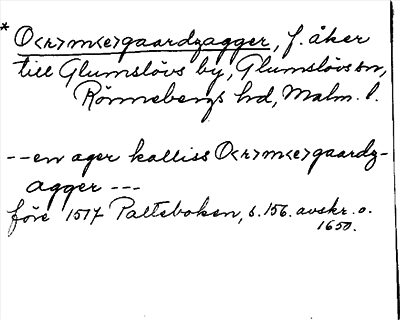 * O<r>m<e>gaardzagger, f. åker
till Glumslövs by, Glumslövs sn,
Rönnebergs hd, Malm. l.
-- en ager kalliss O<r>m<e>gaardz-
agger ---
före 1517 Palteboken, s. 156. avskr. o.
1650.